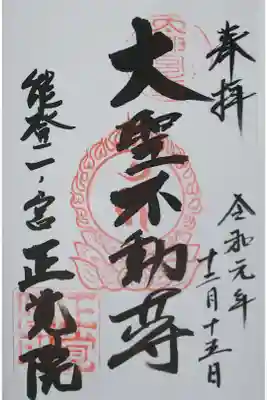 奉拝
令和元年
十二月十五日
大聖不動尊
能登一ノ宮
正覚院